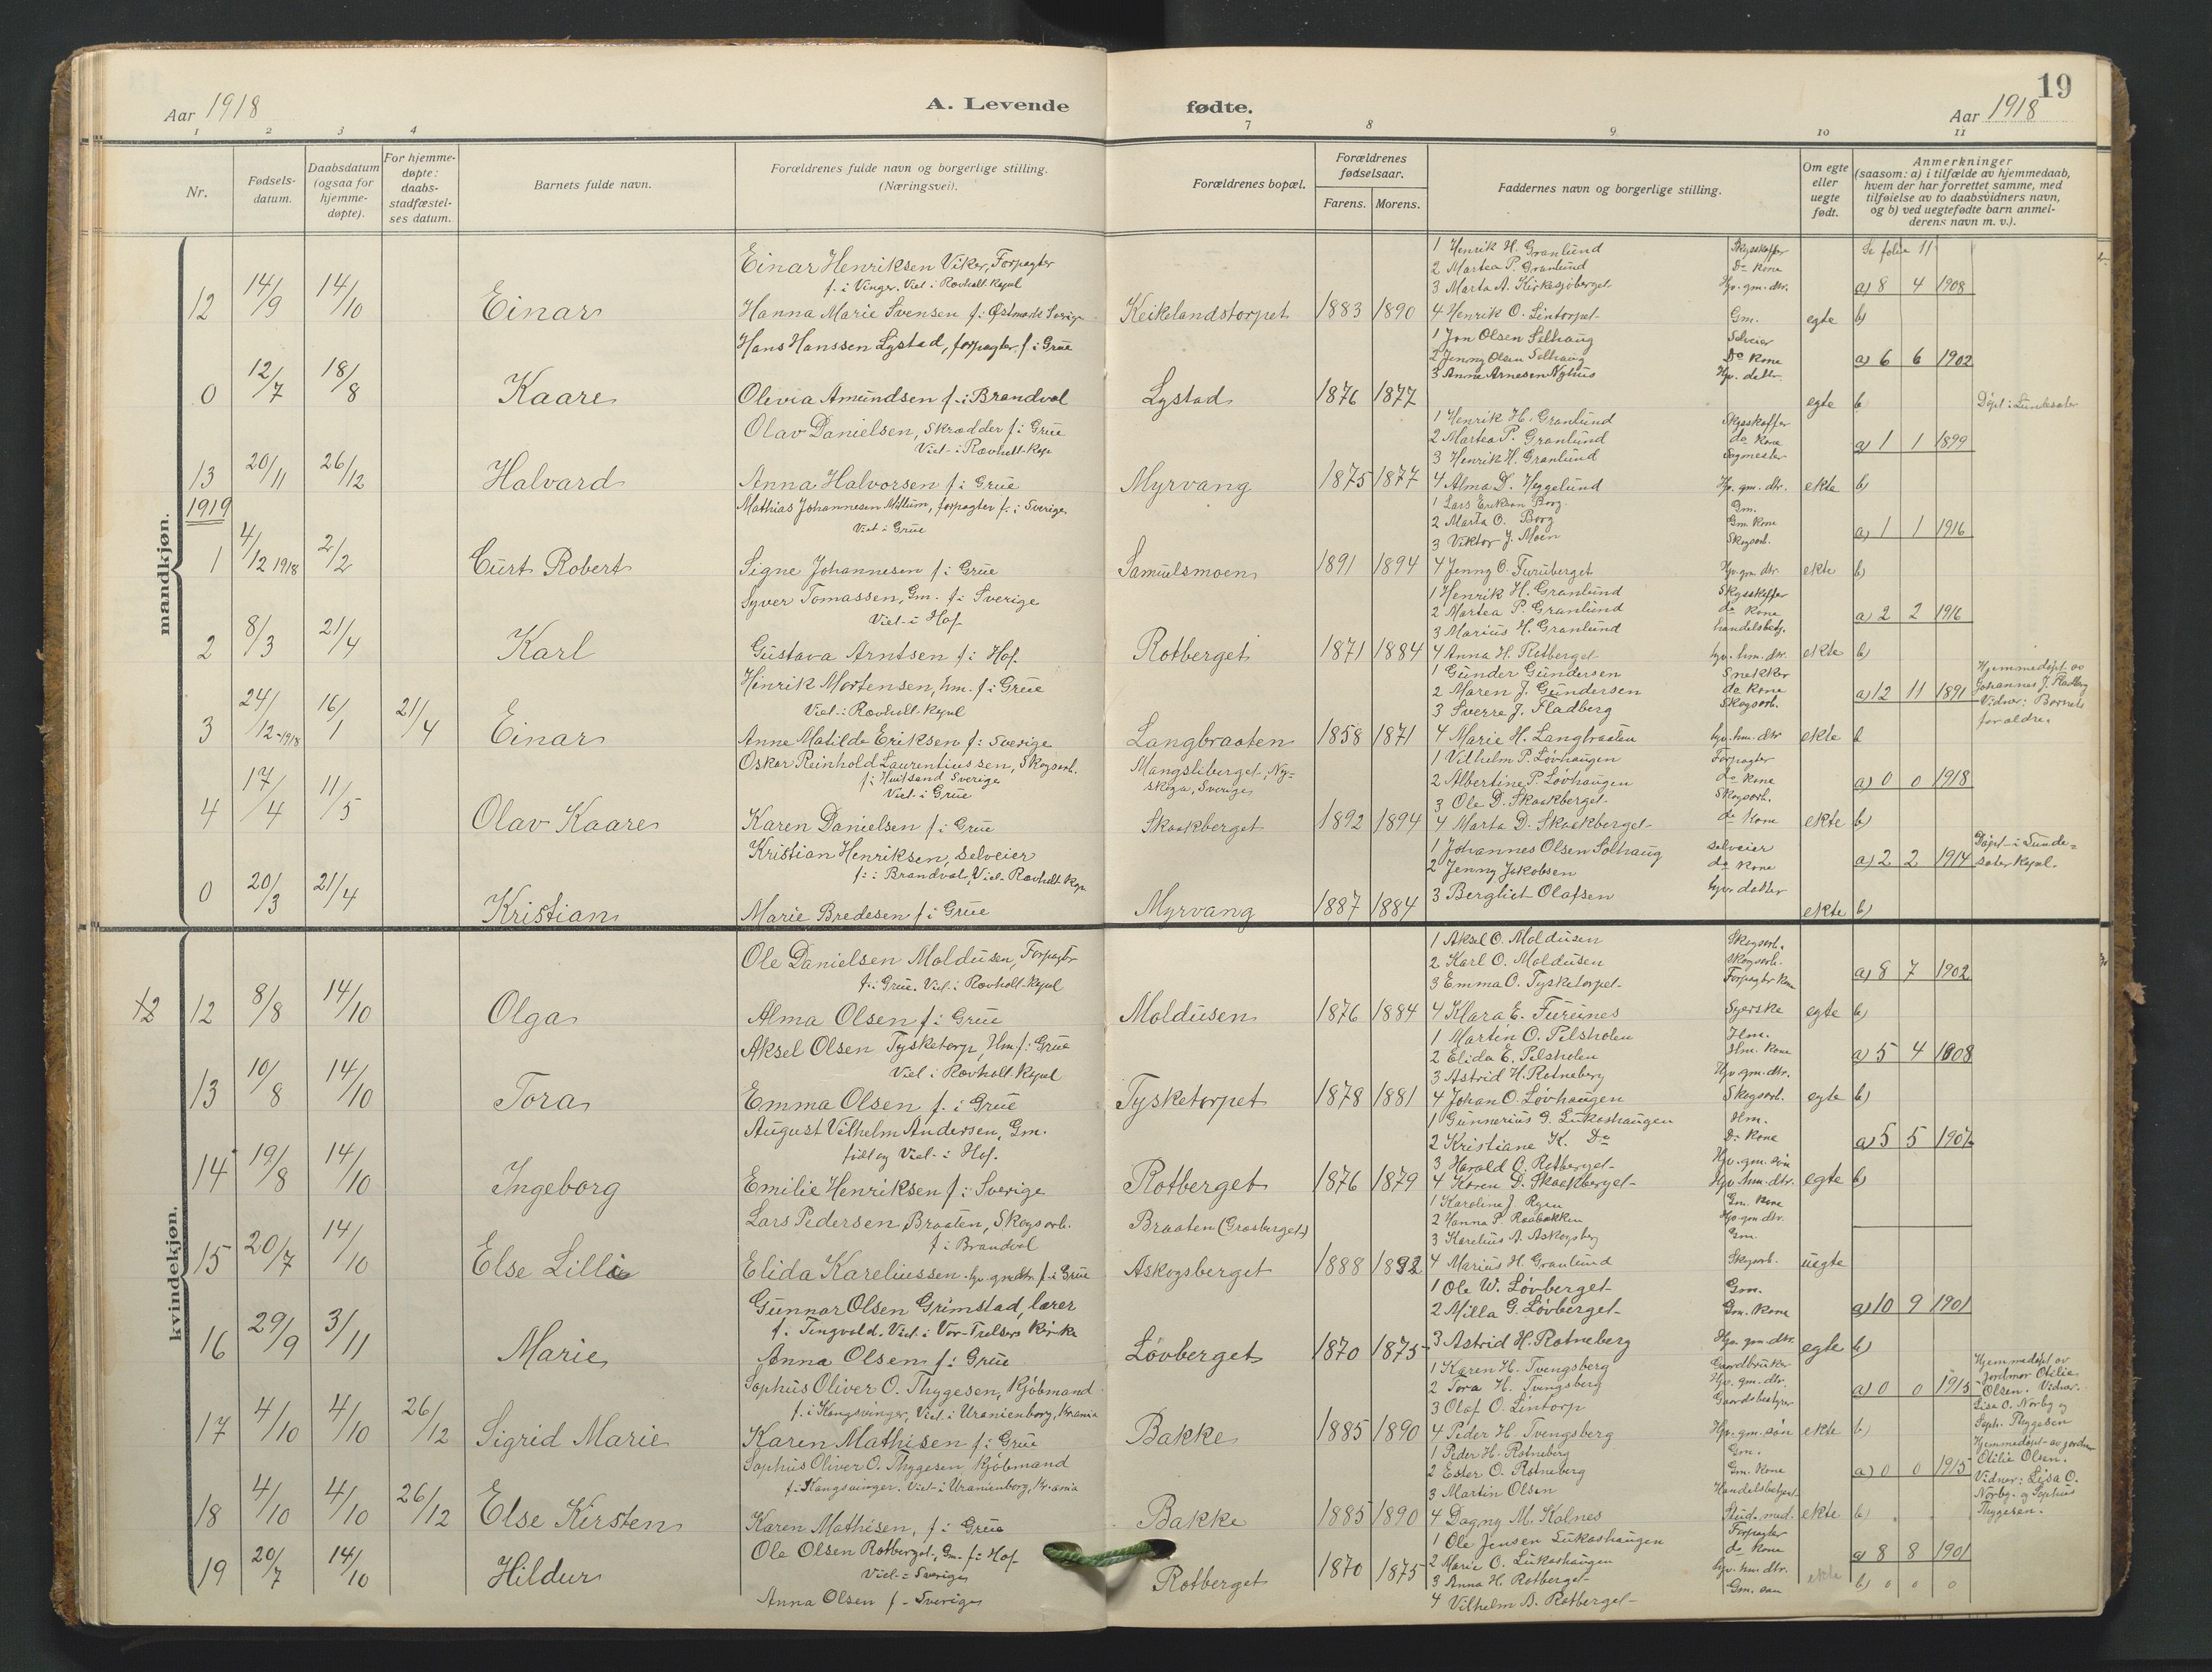 19
Aar 1918 A. Levende fødte. Aar 1918
1 2 3 4 7 8 9 10 11
Nr.
Fødsels-
datum.
Daabsdatum
(ogsaa for
hjemme-
døpte).
For hjemme-
døpte:
daabs-
stadfæstel-
ses datum.
Barnets fulde navn.
Forældrenes fulde navn og borgerlige stilling.
(Næringsvei).
Forældrenes bopæl.
Forældrenes
fødselsaar.
Farens. Morens.
Faddernes navn og borgerlige stilling.
Om egte
eller
uegte
født.
Anmerkninger
(saasom: a) i tilfælde av hjemmedaab,
hvem der har forrettet samme, med
tilføielse av to daabsvidners navn,
og b) ved uegtefødte barn anmel-
derens navn m. v.).
mandkjøn.
12 14/9 14/10 Einar
Einar Henriksen Viker, Forpagter
f. i Vinger. Viet i Rovholt Kapel
Hanna Marie Svensen f. i Østmark Sverige
Keikelandstorpet 1883 1890
1 Henrik H. Granlund Skysskaffer
2 Martea P. Granlund Do Kone
3 Marta A. Kirkesjøberget Hjv. gm. dtr.
4 Henrik O. Lintorpet Gm.
egte
Se folio 11
a) 8 4 1908
b)
0 12/7 18/8 Kaare
Hans Hanssen Lystad, forpagter f. i Grue
Olivia Amundsen f. i Brandval
Lystad 1876 1877
1 Jon Olsen Solhaug Selveier
2 Jenny Olsen Solhaug Do Kone
3 Anna Arnesen Nyhus Hjv. dattr.
egte
a) 6 6 1902
b
Døpt i Lundersæter
13 20/11 26/12 Halvard
Olav Danielsen, Skrædder f. i Grue
Viet i Rovholt Kap
Anna Halvorsen f. i Grue
Myrvang 1875 1877
1 Henrik H. Granlund Skysskaffer
2 Martea P. Granlund do Kone
3 Henrik H. Granlund Sagmester
4 Alma D. Heggelund Hjv. gm. dtr.
ekte
a) 1 1 1899
b)
1919
1 4/12 1918 2/2 Curt Robert
Mathias Johannesen Mittum, forpagter f. i Sverige
Viet i Grue
Signe Johannesen f. i Grue
Samuelsmoen 1891 1894
1 Lars Erikson Borg. Gm.
2 Marta O. Borg Gm. Kone
3 Viktor J. Moen Skogsarb.
4 Jenny O. Furuberget Hjv. gm. dtr.
ekte
a) 1 1 1916
b)
2 8/3 21/4 Karl
Syver Tomassen, Gm. f. i Sverige
Viet i Hof
Gustava Arntsen f. i Hof.
Rotberget 1871 1884
1 Henrik H. Granlund Skysskaffer
2 Martea P. Granlund do Kone
3 Marius H. Granlund handelsbetj.
4 Anna H. Rotberget hjv. hm. dtr.
ekte
a) 2 2 1916
b)
3 24/12-1918 16/1 21/4 Einar
Hinrik Mortensen, hm. f. i Grue
Viet i Rovholt Kapel
Anne Matilde Eriksen f. i Sverige
Langbraaten 1858 1871
1 Gunder Gundersen Snekker
2 Maren J. Gundersen do Kone
3 Sverre J. Fladberg Skogsarb.
4 Marie H. Langbraaten hjv. hm. dtr
ekte
a) 12 11 1891
b
Hjemmedøpt av
Johannes J. Fladberg
Vidner: Barnets
foraldre.
4 17/4 11/5 Olav Kaare
Oskar Reinhold Laurentiussen, Skogsarb.
f. i Hvitsand Sverige
Viet i Grue
Karen Danielsen f. i Grue
Mangsliberget, Ny-
skoga, Sverige
Skaskberget 1892 1894
1 Vilhelm P. Løvhaugen Forpagter
2 Albertine P. Løvhaugen do Kone
3 Ole D. Skaskberget Skogsarb.
4 Marta D. Skaskberget do Kone
ekte
a) 0 0 1918
b)
0 20/3 21/4 Kristian
Kristian Henriksen, Selveier
f. i Brandval, Viet Rovholt Kap
Marie Bredesen f. i Grue
Myrvang 1887 1884
1 Johannes Olsen Solhaug selveier
2 Jenny Jakobsen do Kone
3 Bergliot Olafsen hjv. datter
ekte
a) 2 2 1914
b)
Døpt i Lunder-
sæter Kapel.
kvindekjøn.
12 12 8/8 14/10 Olga
Ole Danielsen Moldusen, Forpagter
f. i Grue. Viet i Rovholt Kapel
Alma Olsen f. i Grue
Moldusen 1876 1884
1 Aksel O. Moldusen Skogsarb.
2 Karl O. Moldusen Skogsarb.
3 Emma O. Tysketorpet Forpagter Kone
4 Klara E. Furunes Syerske
egte
a) 8 7 1902
b)
13 10/8 14/10 Tora
Aksel Olsen Tysketorp, Hm. f. i Grue
Viet i Rovholt Kapel
Emma Olsen f. i Grue
Tysketorpet 1878 1881
1 Martin O. Pilsholen Hm.
2 Elida E. Pilsholen Hm. Kone
3 Astrid H. Rotneberg Hjv. gm. dtr.
4 Johan O. Løvhaugen Skogsarb.
egte
a) 5 4 1908
b)
14 19/8 14/10 Ingeborg
August Vilhelm Andersen, Gm.
født og Viet i Hof.
Emilie Henriksen f. i Sverige
Rotberget 1876 1879
1 Gunnerius G. Lukashaugen Hm.
2 Kristiane K. Do Do Kone
3 Harald O. Rotberget Hjv. gm. søn
4 Karen D. Skaskberget Hjv. hm. dtr.
egte
a) 5 5 1907
b)
15 20/7 14/10 Else Lilli
Lars Pedersen Braaten, Skogsarb.
f. i Brandval
Elida Kareliussen hjv. gm. dtr. f. i Grue
Braaten (Grasberget)
Askogsberget 1888 1892
1 Karoline J. Ryen Gm. Kone
2 Hanna P. Raabakken Hjv. gm. dtr.
3 Karelius A. Askogsberg Gm.
4 Marius H. Granlund Skogsarb.
uegte
16 29/9 3/11 Marie
Gunnar Olsen Grimstad, lærer
f. i Tingvold. Viet i Vor-Frelsers Kirke
Anna Olsen f. i Grue
Løvberget 1870 1875
1 Ole W. Løvberget Gm.
2 Milla G. Løvberget Gm. Kone
3 Astrid H. Rotneberg Hjv. gm. dtr.
egte
a) 10 9 1901
b)
17 4/10 4/10 26/12 Sigrid Marie
Sophus Oliver O. Thygesen, Kjøbmand
f. i Kongsvinger, Viet i Uranienborg, Krania
Karen Mathisen f. i Grue
Bakke 1885 1890
1 Karen H. Tvengsberg Gaardbruker
2 Tora H. Tvengsberg Hjv. gm. dtr.
3 Olaf O. Lintorp Gaardsbestyrer
4 Peder H. Tvengsberg Hjv. gm. søn
ekte
a) 0 0 1915
b)
Hjemmedøpt av
Jordmor Otilie
Olsen. Vidner:
Lisa O. Norby og
Soph. Thygesen
18 4/10 4/10 26/12 Else Kirsten
Sophus Oliver O. Thygesen, Kjøbmand
f. i Kongsvinger. Viet i Uranienborg, Kr.ania
Karen Mathisen, f. i Grue
Bakke 1885 1890
1 Peder H. Rotneberg Gm.
2 Ester O. Rotneberg Gm. Kone
3 Martin Olsen Handelsbetjent
4 Dagny M. Kolnes Stud. med.
ekte
a) 0 0 1915
b)
Hjemmedøpt av jordmor
Otilie Olsen.
Vidner: Lisa O.
Norby og Sophus
Thygesen.
19 20/7 14/10 Hildur
Ole Olsen Rotberget, Gm. f. i Hof
Viet i Sverige
Anna Olsen f. Sverige
Rotberget 1870 1875
1 Ole Jensen Lukashaugen Forpagter
2 Marie O. Lukashaugen do Kone
3 Anna H. Rotberget hjv. hm. dtr.
4 Vilhelm A. Rotberget Gm. søn
ekte
a) 8 8 1901
b) 0 0 0